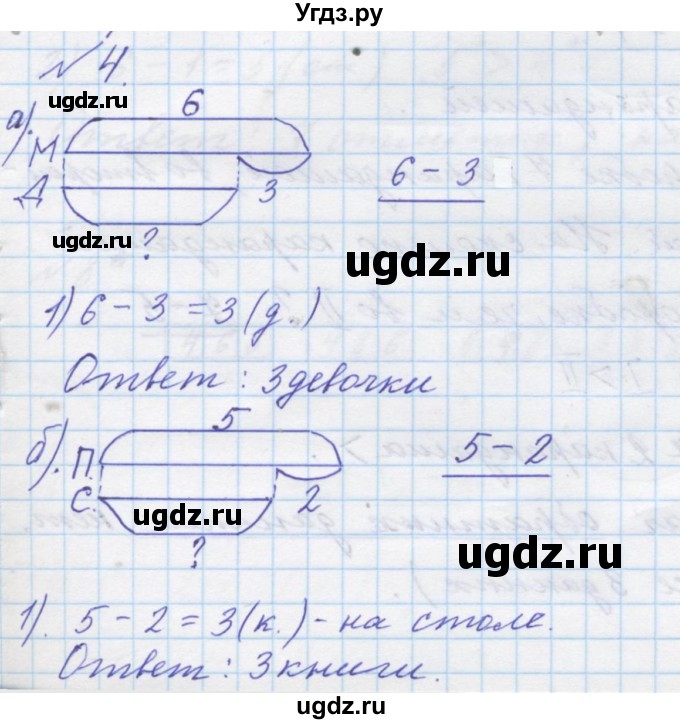 Угдз.ру
№ 4.
ugdz.ru
а).
6
М
Д
3
6 - 3
ugdz.ru
?
ugdz.ru
1) 6 - 3 = 3 (д.)
Ответ : 3 девочки
б).
5
П.
С.
2
5 - 2
ugdz.ru
?
ugdz.ru
1). 5 - 2 = 3 (к.) - на столе.
Ответ : 3 книги.
ugdz.ru